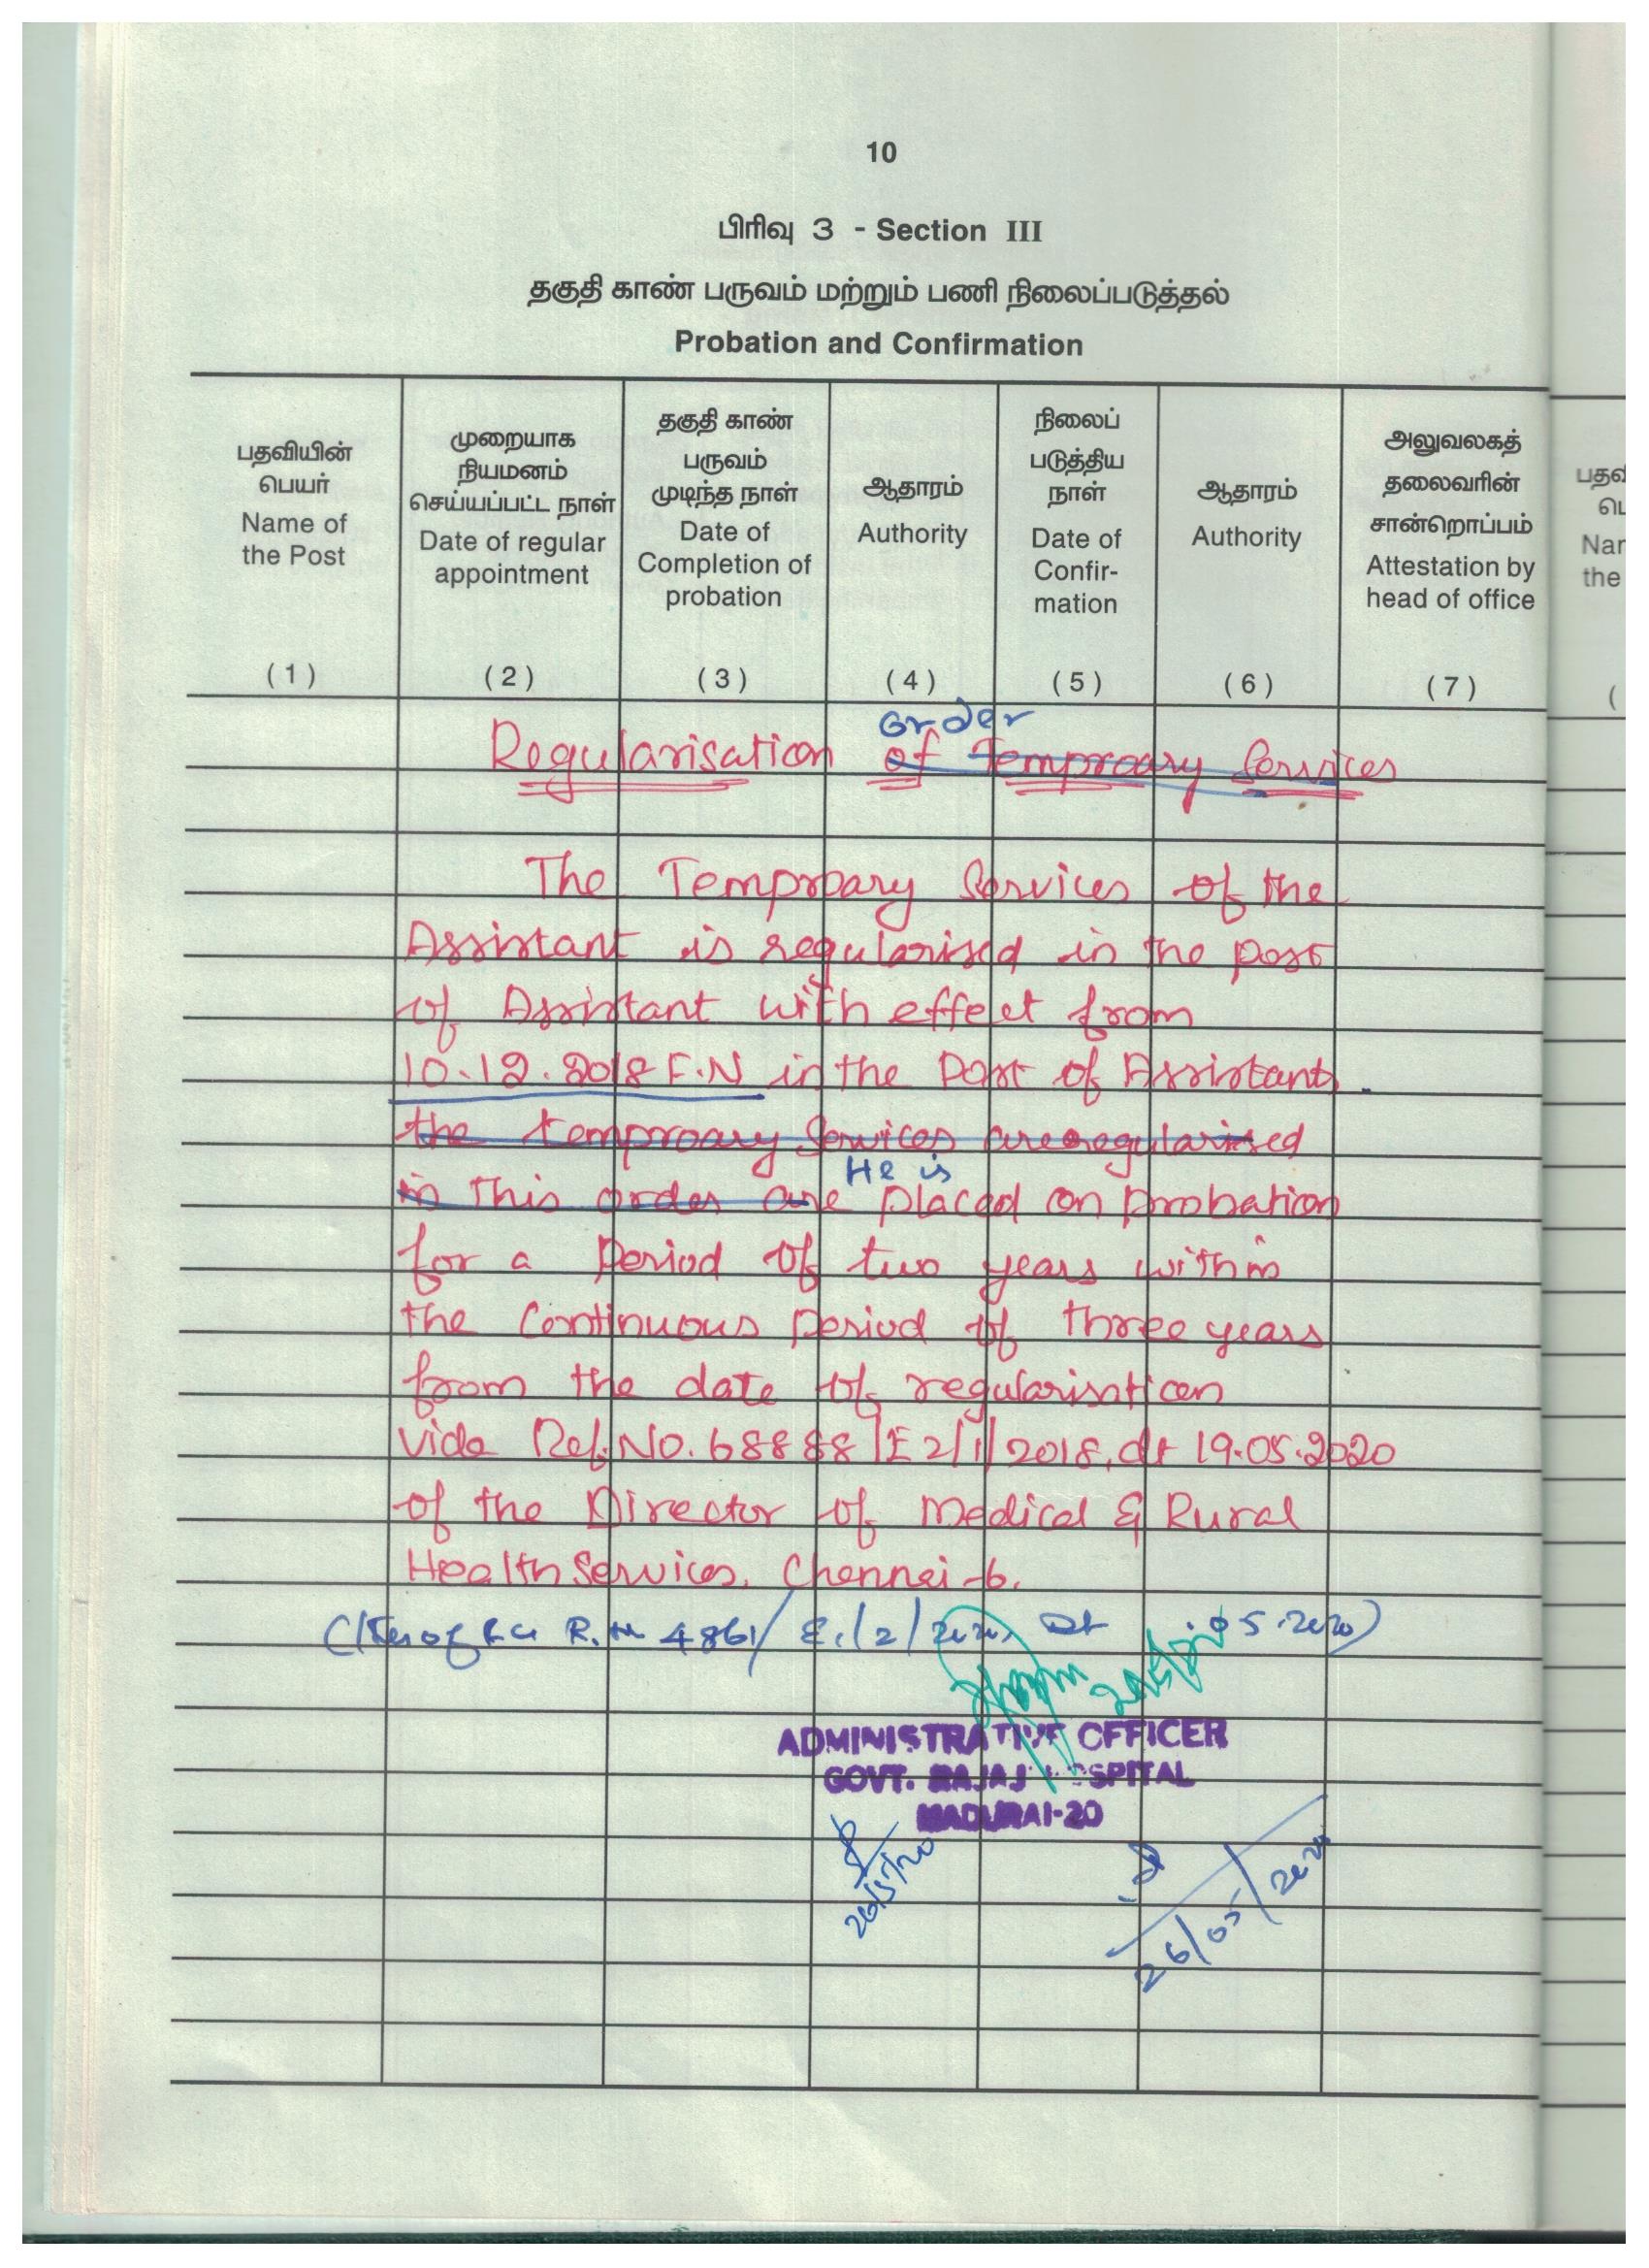 10
பிரிவு 3 - Section III
தகுதி காண் பருவம் மற்றும் பணி நிலைப்படுத்தல்
Probation and Confirmation
பதவியின் பெயர் Name of the Post (1)
முறையாக நியமனம் செய்யப்பட்ட நாள் Date of regular appointment (2)
தகுதி காண் பருவம் முடிந்த நாள் Date of Completion of probation (3)
ஆதாரம் Authority (4)
நிலைப் படுத்திய நாள் Date of Confir-mation (5)
ஆதாரம் Authority (6)
அலுவலகத் தலைவரின் சான்றொப்பம் Attestation by head of office (7)
Order
Regularisation of Temproary Services
The Temproary Services of the
Assistant is regularised in the post
of Assistant with effect from
10.12.2018 F.N in the Post of Assistant.
the temproary Services are regularised
He is
in this order are placed on probation
for a period of two years within
the continuous period of three years
from the date of regularisation
vide Ref.No.68888/E2/1/2018, dt 19.05.2020
of the Director of Medical & Rural
Health Services, Chennai-6.
R. No 4861/E1/2/2020, Dt .05.2020)
ADMINISTRATIVE OFFICER
GOVT. RAJAJI HOSPITAL
MADURAI-20
26/5/20
26/05/2020
பதவி
பெ
Nar
the
(